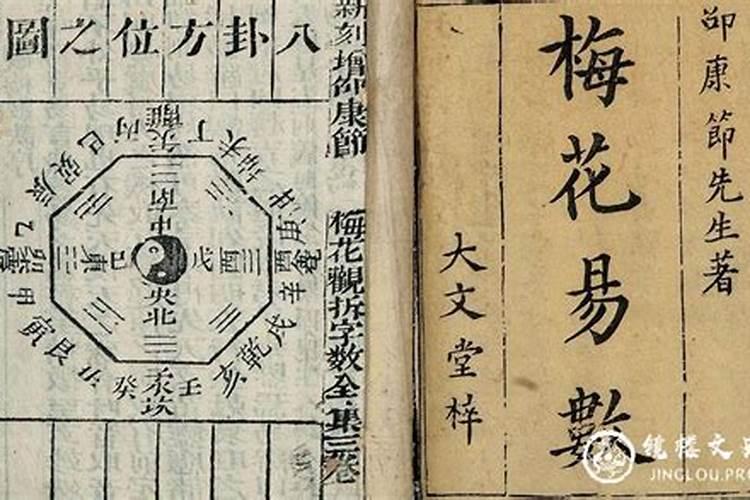 邵康節先生著
梅花易數
大文堂梓
新刻增邵康節
梅花觀拆字數全集三卷
八卦方位之圖
離
丙
丁
未
坤
申
庚
兌
辛
戌
乾
亥
壬
坎
癸
艮
寅
甲
乙
辰
巽
巳
南
中央
北
東
己
戊
JINGLOU.PR